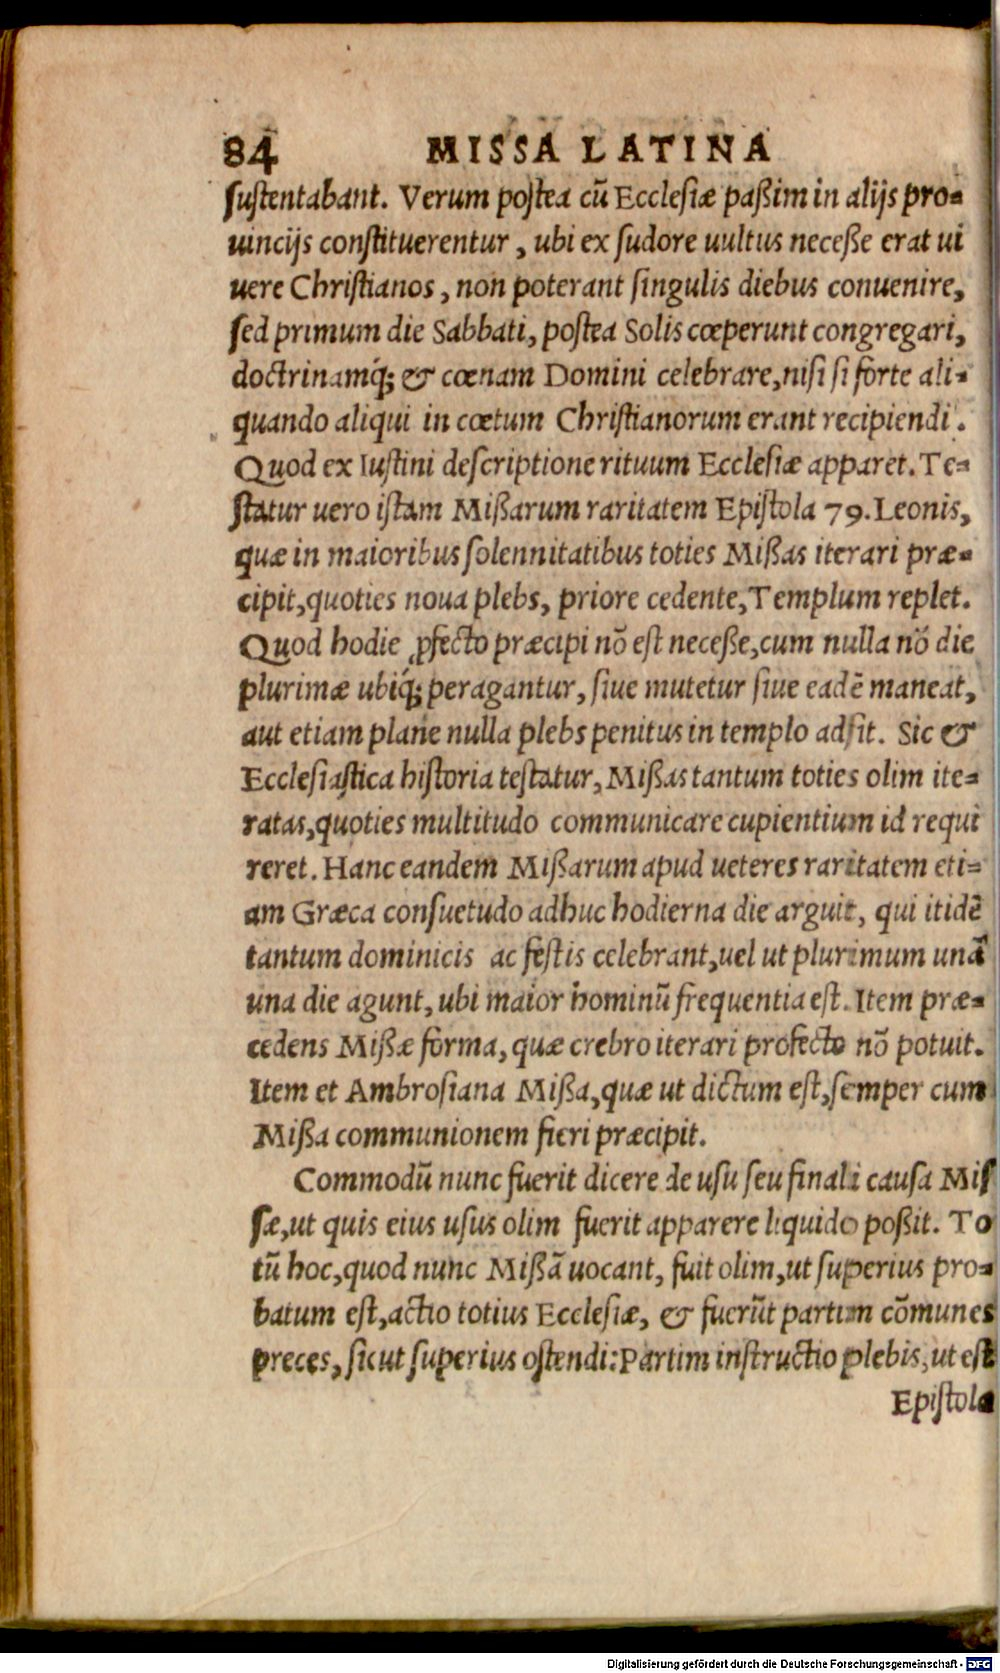 84 MISSA LATINA
ſuſtentabant. Verum poſtea cũ Eccleſiæ paßim in alijs pro-
uincijs conſtituerentur, ubi ex ſudore uultus neceße erat ui
uere Chriſtianos, non poterant ſingulis diebus conuenire,
ſed primum die Sabbati, poſtea Solis cœperunt congregari,
doctrinamq́; & cœnam Domini celebrare, niſi ſi forte ali-
quando aliqui in cœtum Chriſtianorum erant recipiendi.
Quod ex Iuſtini deſcriptione rituum Eccleſiæ apparet. Te-
ſtatur uero iſtam Mißarum raritatem Epiſtola 79. Leonis,
quæ in maioribus ſolennitatibus toties Mißas iterari præ-
cipit, quoties noua plebs, priore cedente, Templum replet.
Quod hodie ꝓfecto præcipi nõ eſt neceße, cum nulla nõ die
plurimæ ubiq́; peragantur, ſiue mutetur ſiue eadẽ maneat,
aut etiam plane nulla plebs penitus in templo adſit. Sic &
Eccleſiaſtica hiſtoria teſtatur, Mißas tantum toties olim ite-
ratas, quoties multitudo communicare cupientium id requi
reret. Hanc eandem Mißarum apud ueteres raritatem eti-
am Græca conſuetudo adhuc hodierna die arguit, qui itidẽ
tantum dominicis ac feſtis celebrant, uel ut plurimum unã
una die agunt, ubi maior hominũ frequentia eſt. Item præ-
cedens Mißæ forma, quæ crebro iterari profecto nõ potuit.
Item et Ambroſiana Mißa, quæ ut dictum eſt, ſemper cum
Mißa communionem fieri præcipit.
Commodũ nunc fuerit dicere de uſu ſeu finali cauſa Miſ
ſæ, ut quis eius uſus olim fuerit apparere liquido poßit. To
tũ hoc, quod nunc Mißã uocant, fuit olim, ut ſuperius pro-
batum eſt, actio totius Eccleſiæ, & fuerũt partim cõmunes
preces, ſicut ſuperius oſtendi: Partim inſtructio plebis, ut eſt
Epiſtola
Digitalisierung gefördert durch die Deutsche Forschungsgemeinschaft - DFG